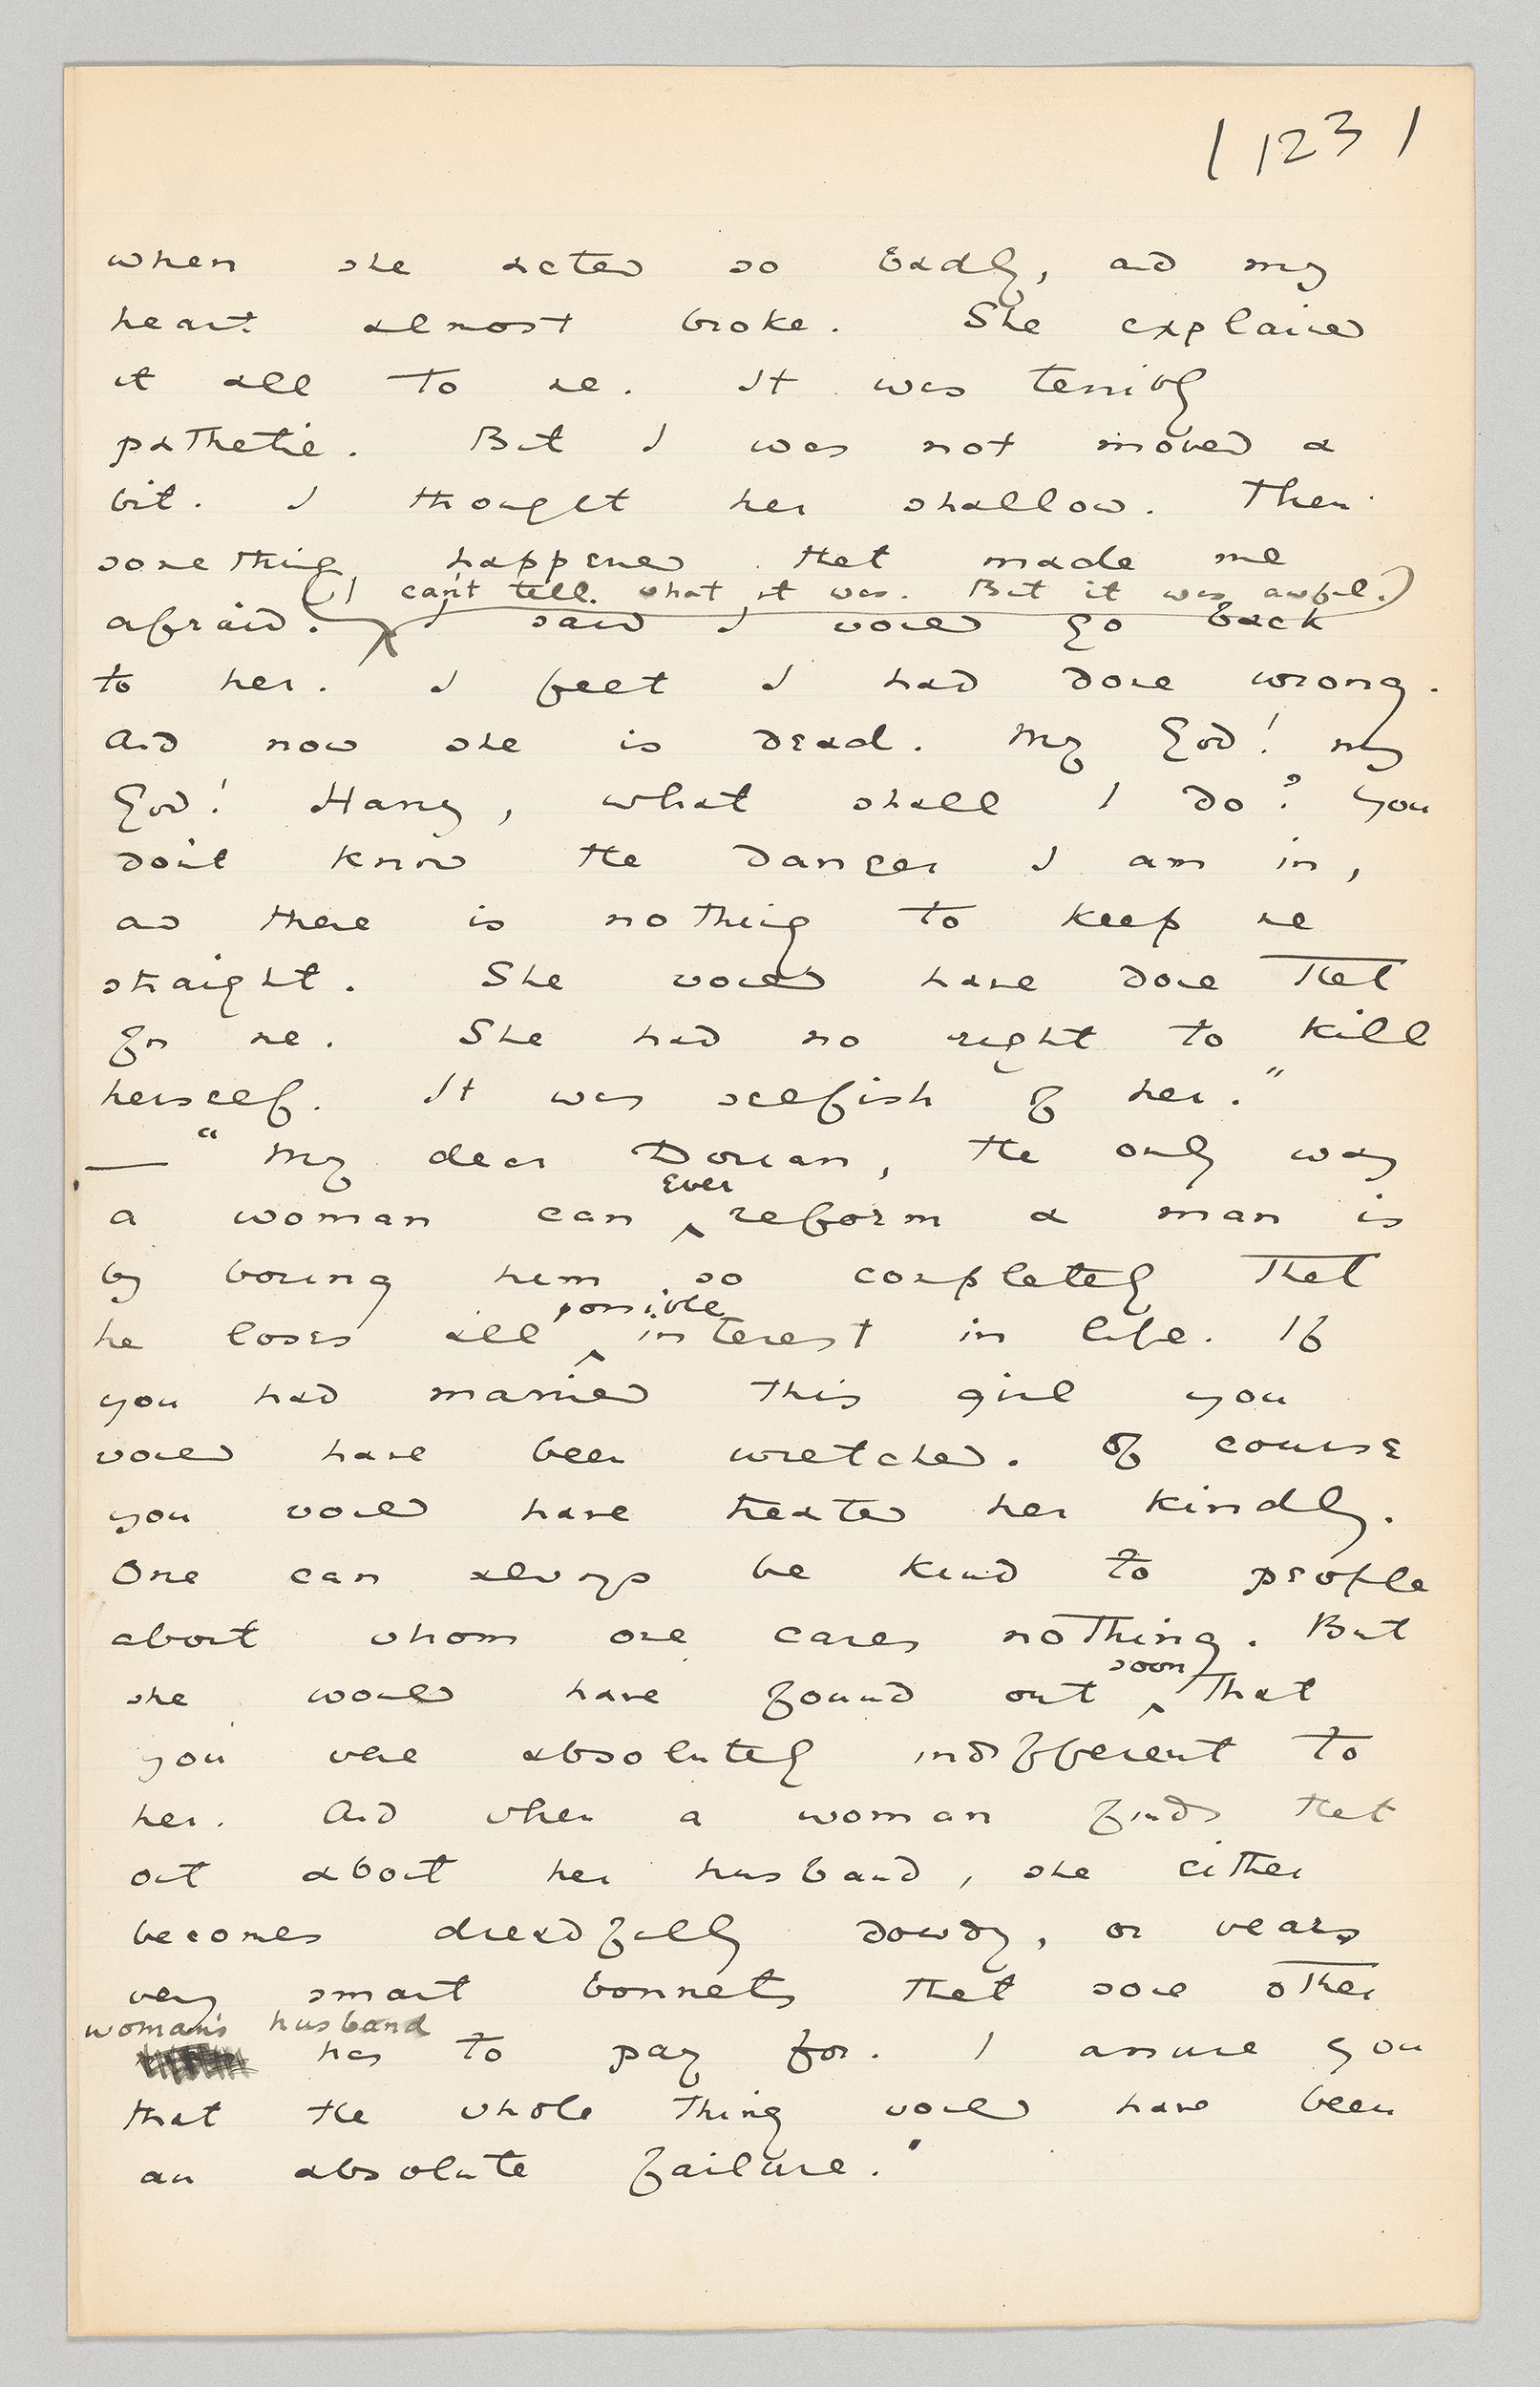 / 123 /
when she acted so badly, and my
heart almost broke. She explained
it all to me. It was terribly
pathetic. But I was not moved a
bit. I thought her shallow. Then
something happened that made me
(I can't tell what it was. But it was awful.)
afraid. I said I would go back
to her. I felt I had done wrong.
And now she is dead. My God! my
God! Harry, what shall I do? You
don't know the danger I am in,
and there is nothing to keep me
straight. She would have done that
for me. She had no right to kill
herself. It was selfish of her."
— "My dear Dorian, the only way
ever
a woman can ^ reform a man is
by boring him so completely that
possible
he loses all ^ interest in life. If
you had married this girl you
would have been wretched. Of course
you would have treated her kindly.
One can always be kind to people
about whom one cares nothing. But
soon
she would have found out ^ that
you were absolutely indifferent to
her. And when a woman finds that
out about her husband, she either
becomes dreadfully dowdy, or wears
very smart bonnets that some other
woman's husband
has to pay for. I assure you
that the whole thing would have been
an absolute failure."